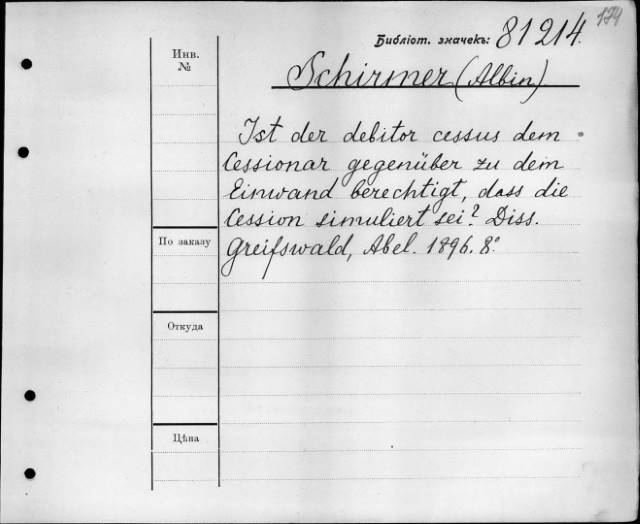 174
Библіот. значекъ: 81214.
Инв.
№
Schirmer (Albin)
Ist der debitor cessus dem
Cessionar gegenüber zu dem
Einwand berechtigt, dass die
Cession simuliert sei? Diss.
Greifswald, Abel. 1896. 8º
По заказу
Откуда
Цѣна